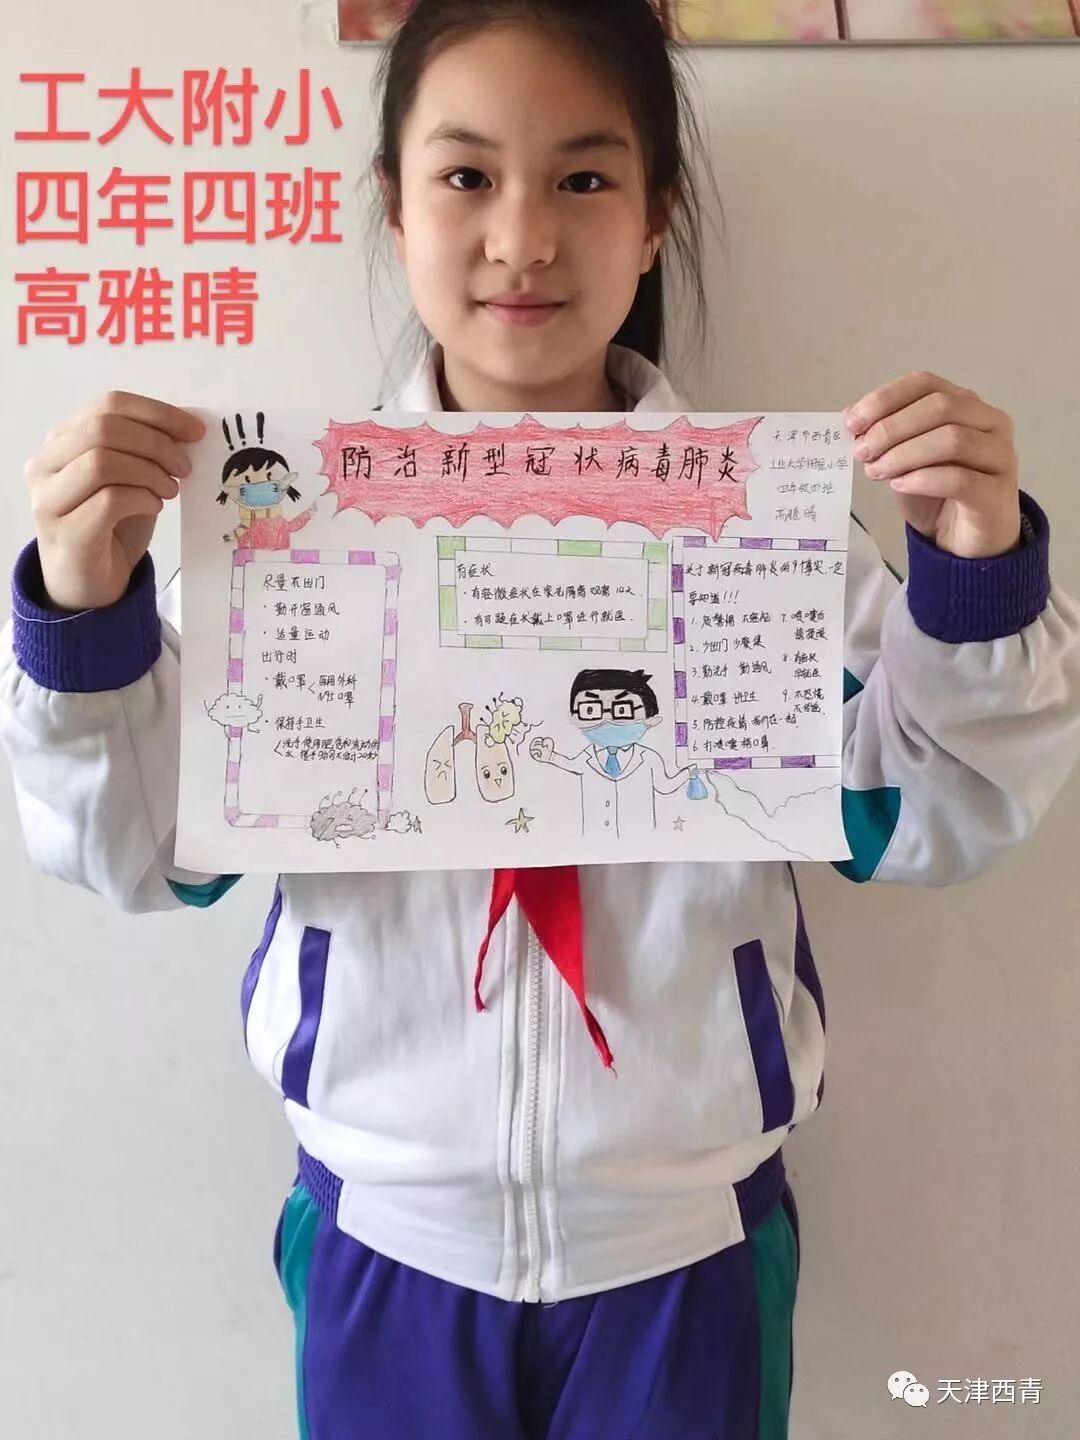 工大附小
四年四班
高雅晴
防治新型冠状病毒肺炎
天津市西青区
工业大学附属小学
四年级四班
高雅晴
尽量不出门
·勤开窗通风
·适量运动
出行时
·戴口罩<医用外科
N95口罩
·保持手卫生
有症状
·有轻微症状在家先隔离观察
·有可疑症状戴上口罩进行就医.
关于新冠病毒肺炎的9件事实,一定
要知道!!!
1.
2.少出门 少聚集
3.勤洗手 勤通风
4.戴口罩 讲卫生
5.防控疫情 我们在一起
6.打喷嚏 捂口鼻
7.喷嚏后
8.有症状
早就医
9.不恐慌
不传谣
天津西青